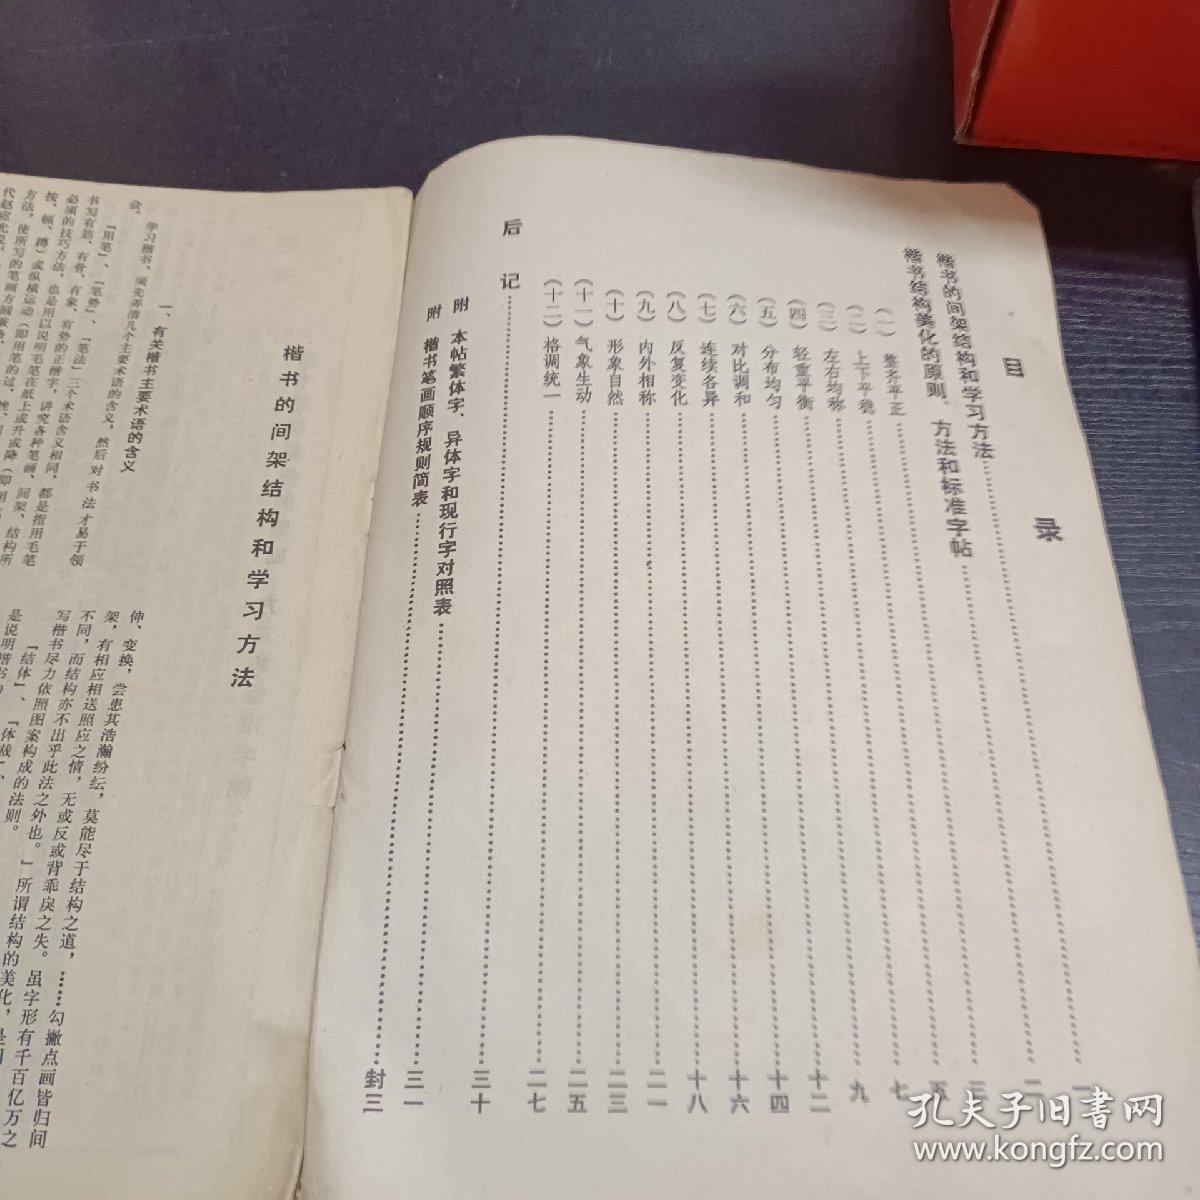 目录
楷书的间架结构和学习方法……一
楷书结构美化的原则、方法和标准字帖……二
（一）整齐平正……三
（二）上下平稳……五
（三）左右均称……七
（四）轻重平衡……九
（五）分布均匀……十二
（六）对比调和……十四
（七）连续各异……十六
（八）反复变化……十八
（九）内外相称……二一
（十）形象自然……二三
（十一）气象生动……二五
（十二）格调统一……二七
后记……三十
附 本帖繁体字、异体字和现行字对照表……三一
附 楷书笔画顺序规则简表……封三
楷书的间架结构和学习方法
一、有关楷书主要术语的含义
学习楷书，须先弄清几个主要术语的含义，然后对书法才易于领
会。
「用笔」、「笔势」、「笔法」三个术语含义相同，都是指用毛笔
书写有筋、有骨、有象、有势的正楷字，讲究各种笔画、间架、结构所
必须的技巧方法，也是用以说明毛笔在纸上或升或降（即用
按、顿、蹲）或纵横运动（即用笔的过、
方法，使所写的笔画方圆
伸、变换，尝患其浩瀚纷纭，莫能尽于结构之道，……勾撇点画皆归间
架，有相应相送照应之情，无或反或背乖戾之失。虽字形有千百亿万之
不同，而结构亦不出乎此法之外也。」所谓结构的美化，是
写楷书尽力依照图案构成的法则。
「结体」、「体裁」、
是说明楷书
孔夫子旧书网
www.kongfz.com